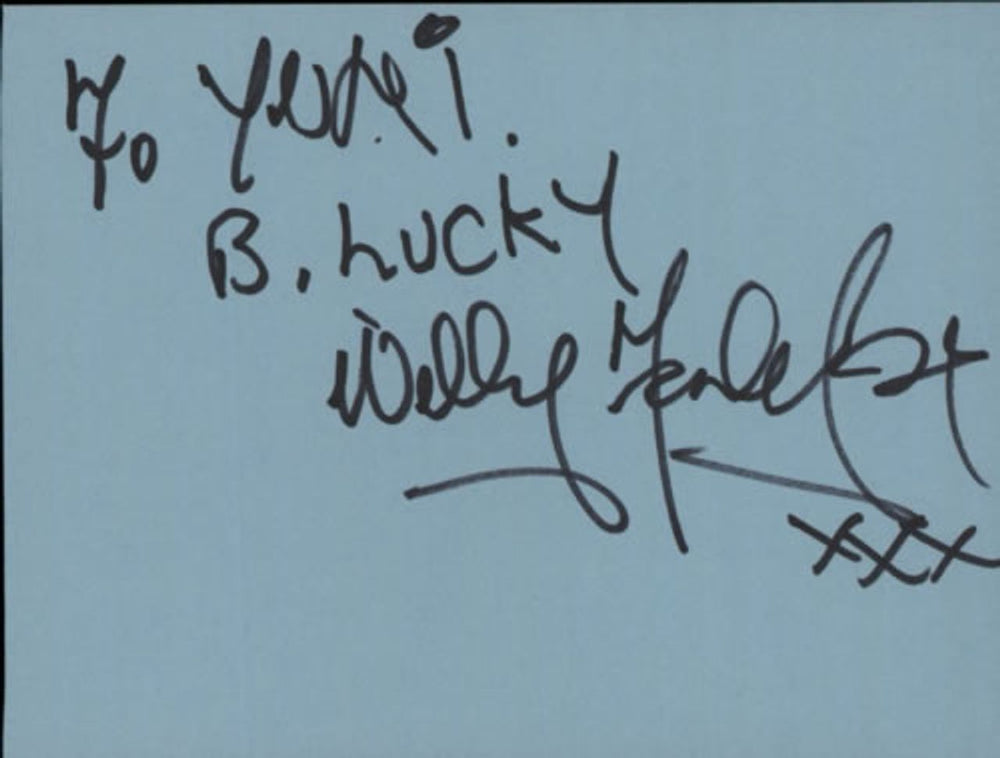 To YUKI.
B. LUCKY
Willy
xxx